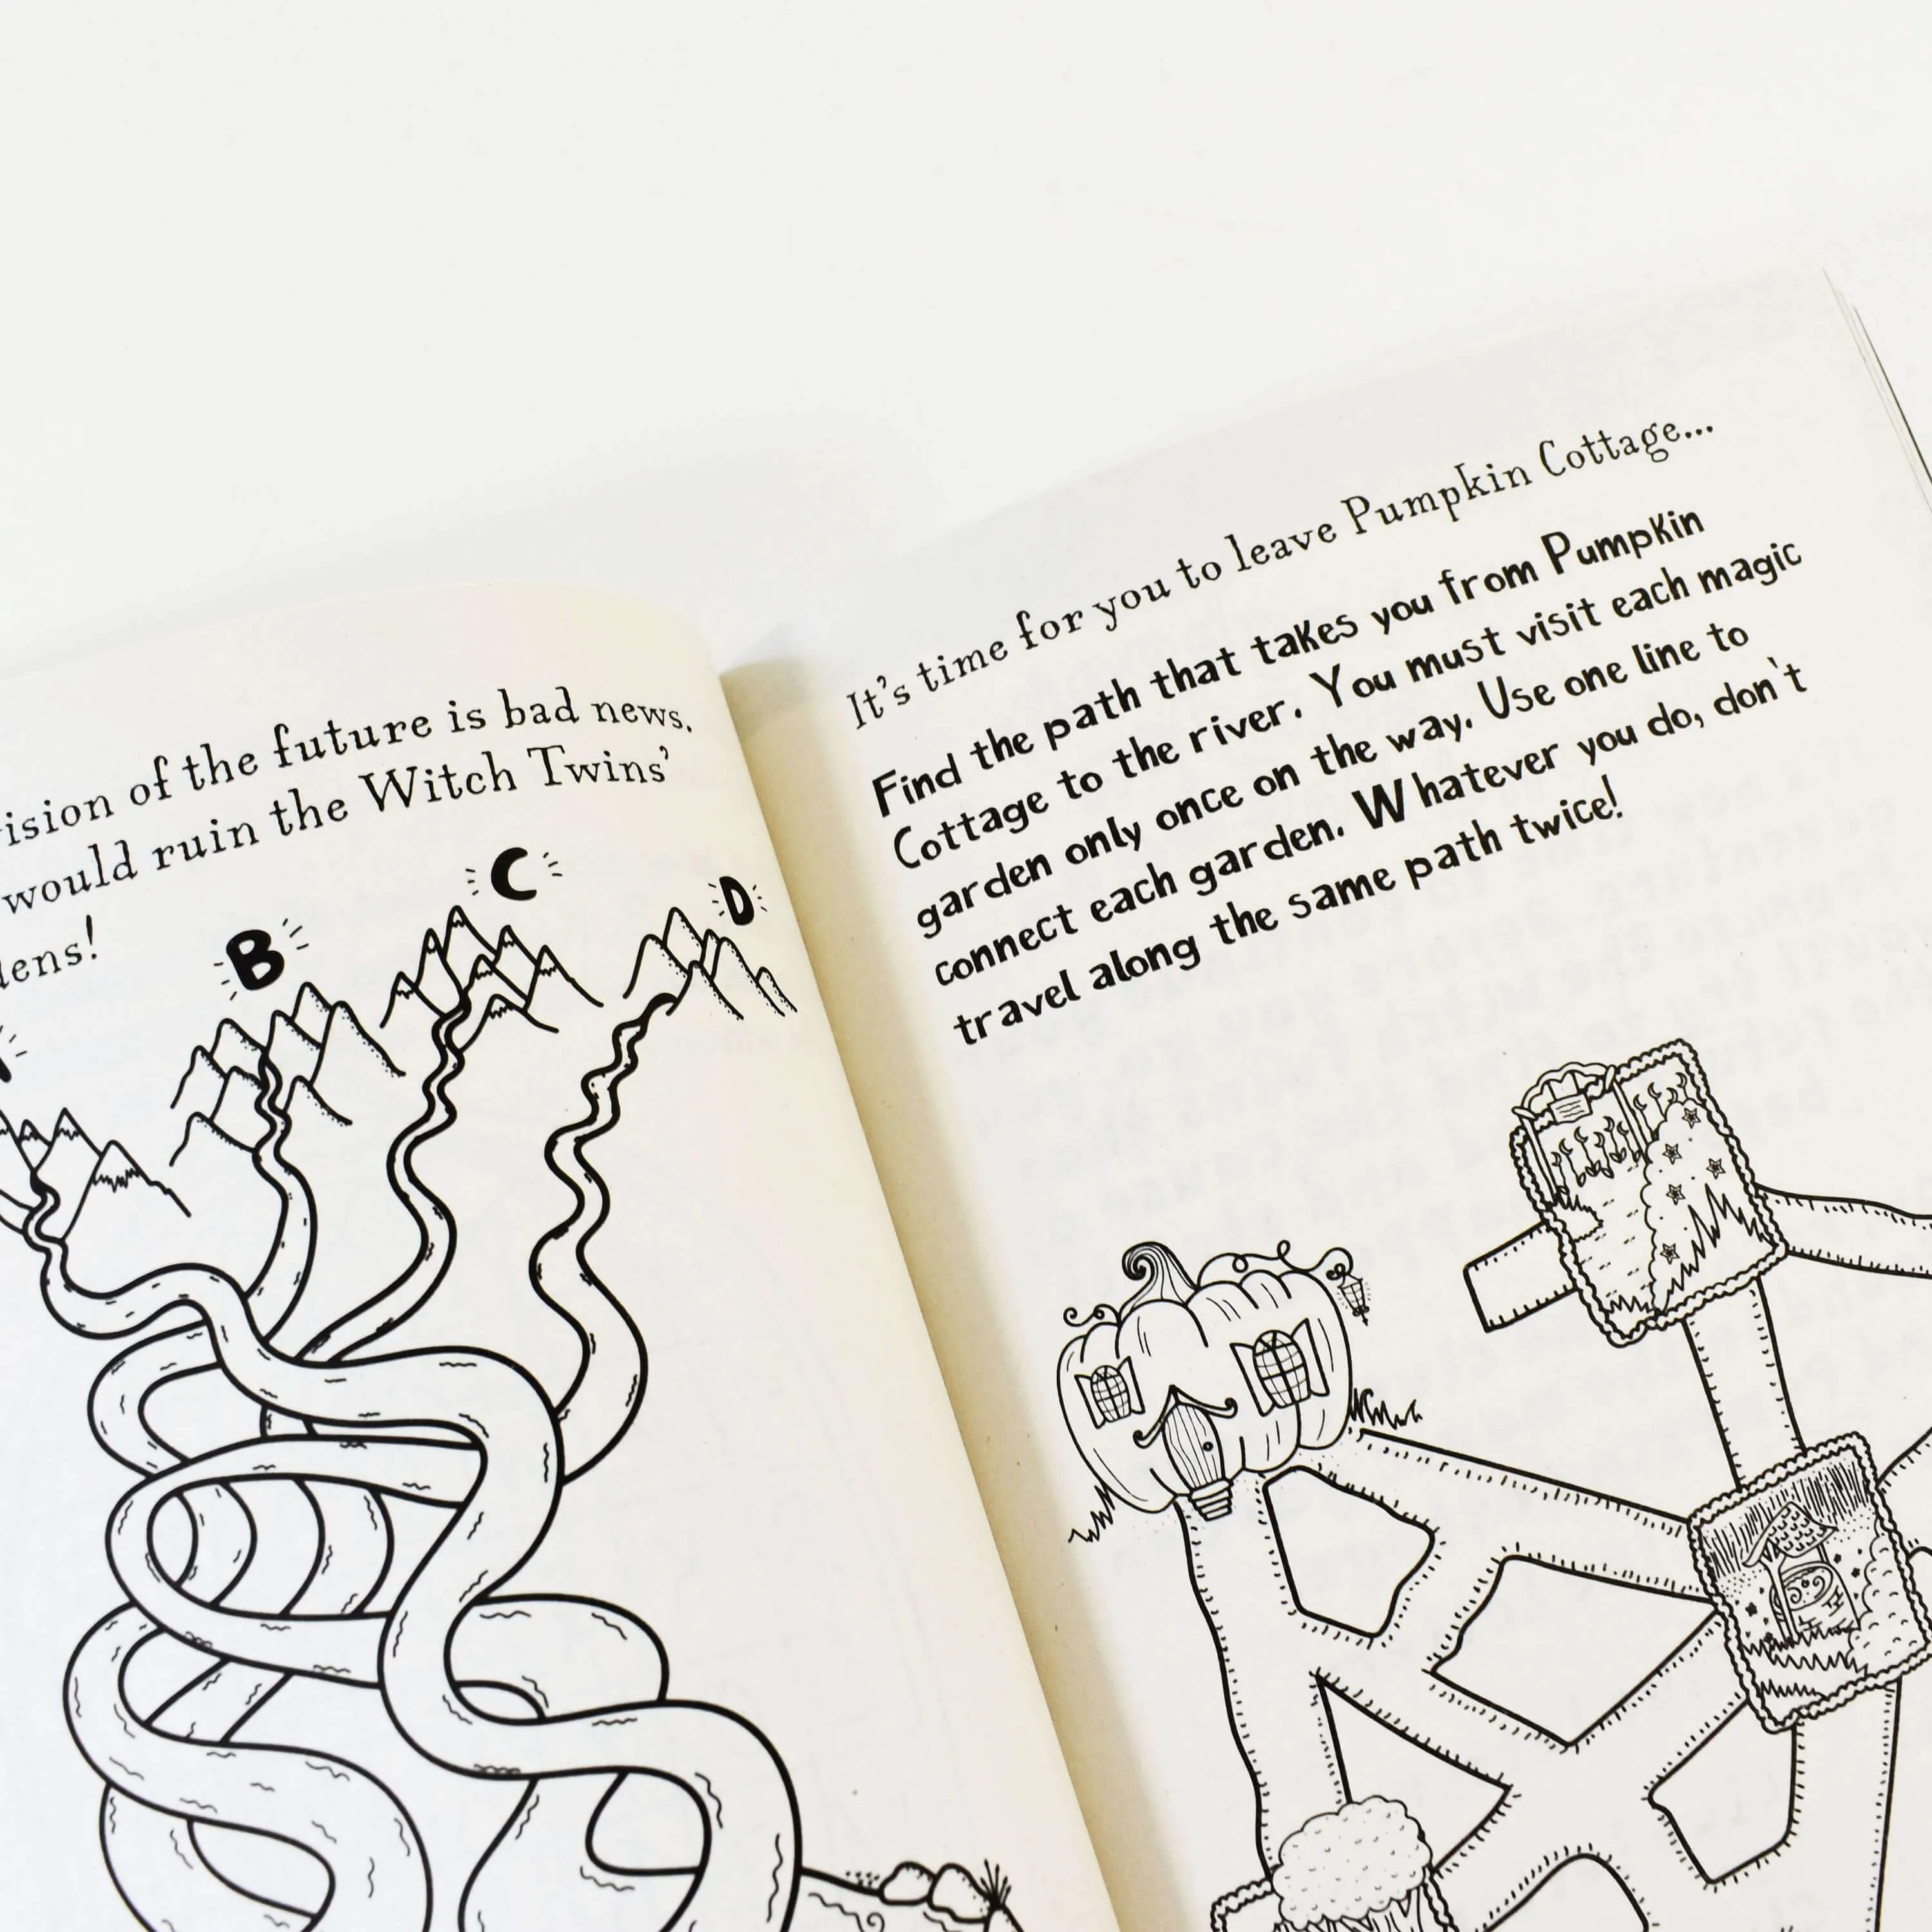 ision of the future is bad news.
would ruin the Witch Twins'
dens!
B
C
D
It's time for you to leave Pumpkin Cottage...
Find the path that takes you from Pumpkin
Cottage to the river. You must visit each magic
garden only once on the way. Use one line to
connect each garden. Whatever you do, don't
travel along the same path twice!